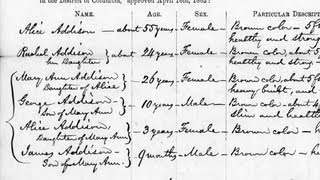 in the District of Columbia," approved April 16th, 1862:
NAME. AGE. SEX. PARTICULAR DESCRIPT
Alice Addison — about 55 years - Female - Brown color - 5 f
healthy and strong
Rachel Addison } about 24 years - Female - Brown color, about 5
her Daughter healthy & strong
Mary Ann Addison - 26 years - Female - Brown color about 5 f
Daughter of Alice heavy built, and
George Addison - 10 years - Male - Brown color - about 4
Son of Mary Ann slim and health
Alice Addison, - 3 years - Female - Brown color - h
Daughter of Mary Ann
James Addison - 9 months - Male - Brown color - he
Son of Mary Ann.